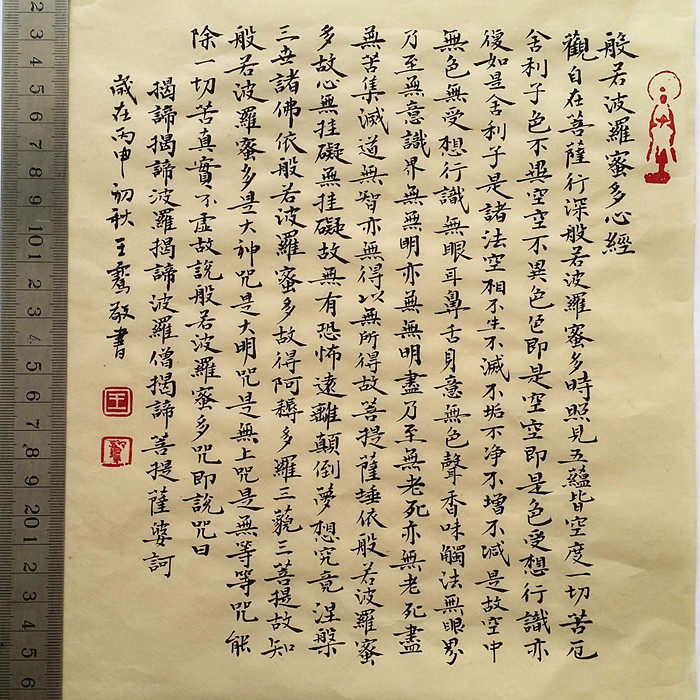 般若波羅蜜多心經
觀自在菩薩行深般若波羅蜜多時照見五蘊皆空度一切苦厄
舍利子色不異空空不異色色即是空空即是色受想行識亦
復如是舍利子是諸法空相不生不滅不垢不净不增不减是故空中
無色無受想行識無眼耳鼻舌身意無色聲香味觸法無眼界
乃至無意識界無無明亦無無明盡乃至無老死亦無老死盡
無苦集滅道無智亦無得以無所得故菩提薩埵依般若波羅蜜
多故心無挂礙無挂礙故無有恐怖遠離顛倒夢想究竟涅槃
三世諸佛依般若波羅蜜多故得阿耨多羅三藐三菩提故知
般若波羅蜜多是大神咒是大明咒是無上咒是無等等咒能
除一切苦真實不虛故說般若波羅蜜多咒即說咒曰
揭諦揭諦波羅揭諦波羅僧揭諦菩提薩婆訶
歲在丙申初秋王騫敬書
王
2 3 4 5 6 7 8 9 10 1 2 3 4 5 6 7 8 9 20 1 2 3 4 5 6